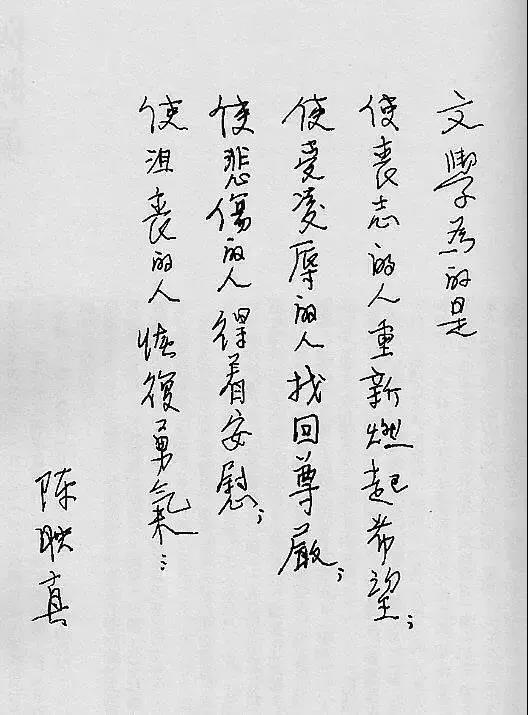 文學為的是
使喪志的人重新燃起希望；
使受凌辱的人找回尊嚴；
使悲傷的人得着安慰；
使沮喪的人恢復勇氣…
陈映真